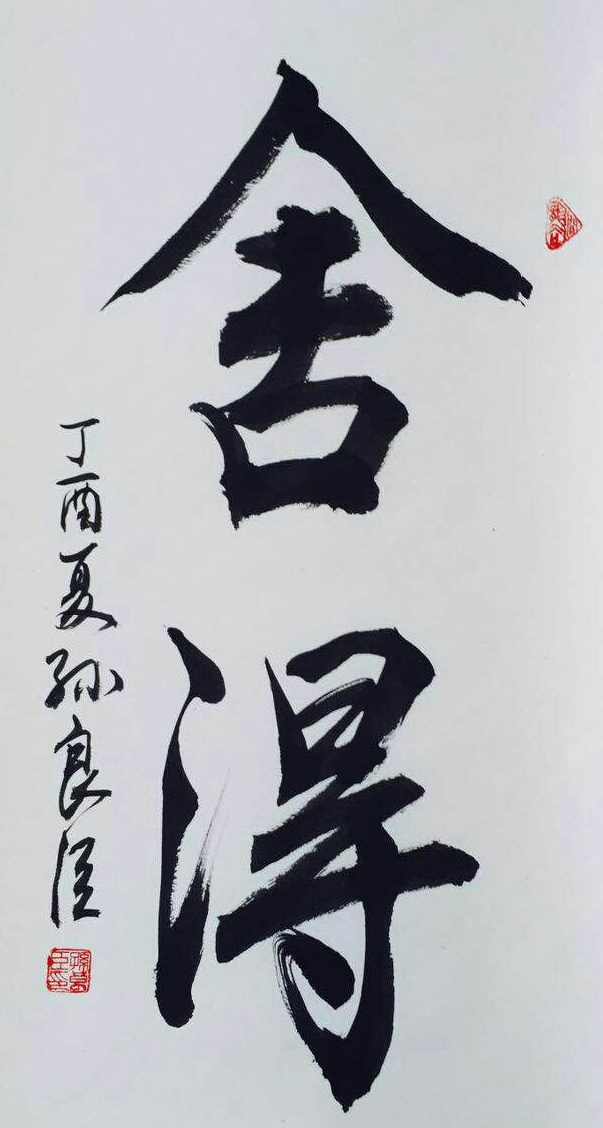 舍得
丁酉夏孙良臣